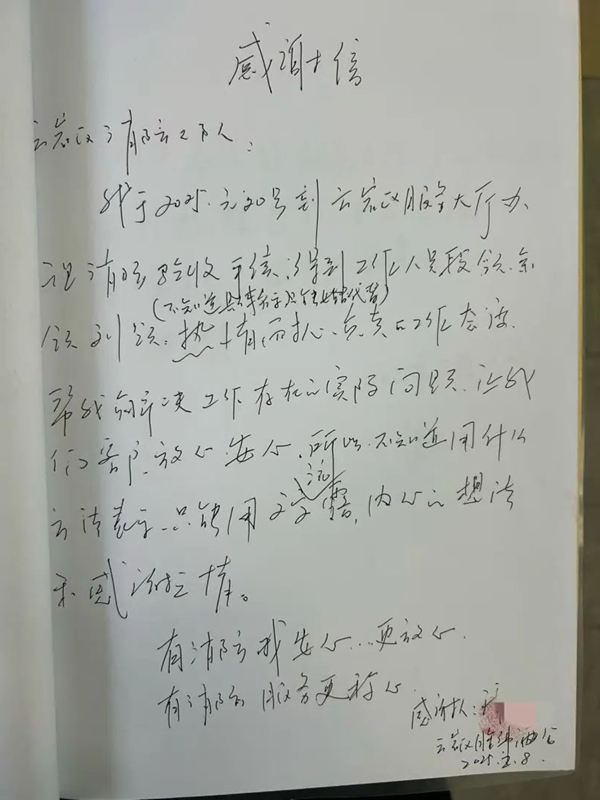 感谢信
云岩区消防云工万人：
我于2025.元20号到云岩区服务大厅办
理消防验收手续，得到工作人员段领.余
（不知道具体名字只能姓替代替）
领、刘领、热情、耐心、负责的工作态度.
帮我们解决工作存在的实际问题.让我
们客户放心安心.所以不知道用什么
方法表示.只能用文字
露,内心的想法
和感谢之情。
有消防云我安心...更放心.
有消防云服务更称心.
感谢人：
云岩区
2025.2.8.